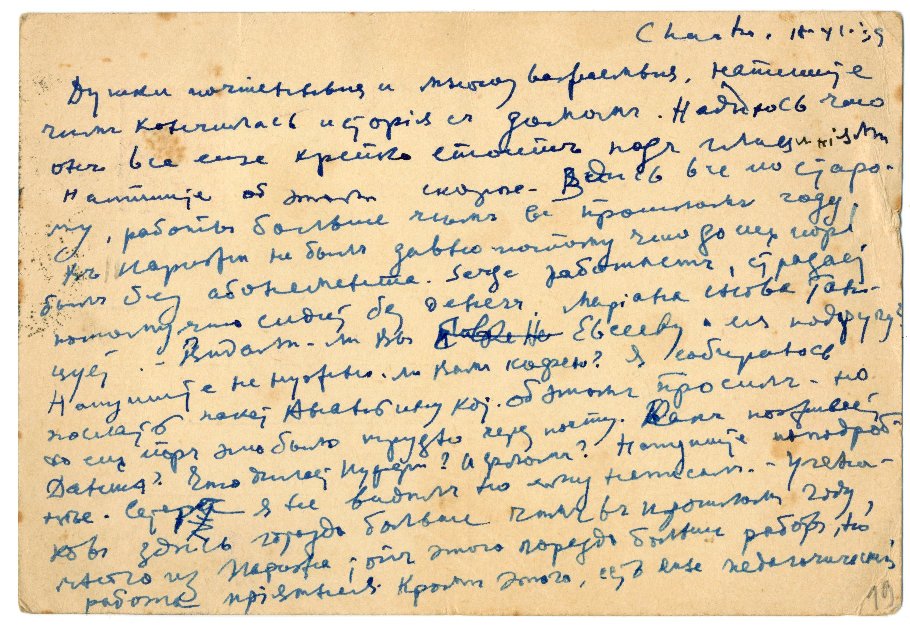 Chartr. 18-XI-39
Душки почтенныя и многоуважаемыя, напишите
чѣмъ кончилась исторія съ домомъ. Надѣюсь что
онъ все еще крѣпко стоитъ подъ
Напишите об этом скорѣе. Здѣсь все по старо-
му, работы больше чѣмъ въ прошломъ году.
Въ Парижѣ не былъ давно потому что до сих поръ
былъ без абонемента. Serge работаетъ, страдает
потому что сидит без денегъ, Маріана снова Тан-
цует. - Видали-ли Вы Евсееву и ея подругу?
Напишите не нужно-ли Вамъ кофею? Я собираюсь
послать пакет кот. об этомъ просилъ - но
до сих поръ это было трудно черезъ почту. Какъ поживает
Данша? Что дѣлает ? И ? Напишите поподроб-
нѣе. я не видѣлъ но ему написалъ. - Учени-
ковъ здѣсь гораздо больше чѣмъ въ прошломъ году,
много из Парижа; отъ этого гораздо больше работы, но
работа пріятнѣе. Кромѣ этого, есть еще педагогическій
19